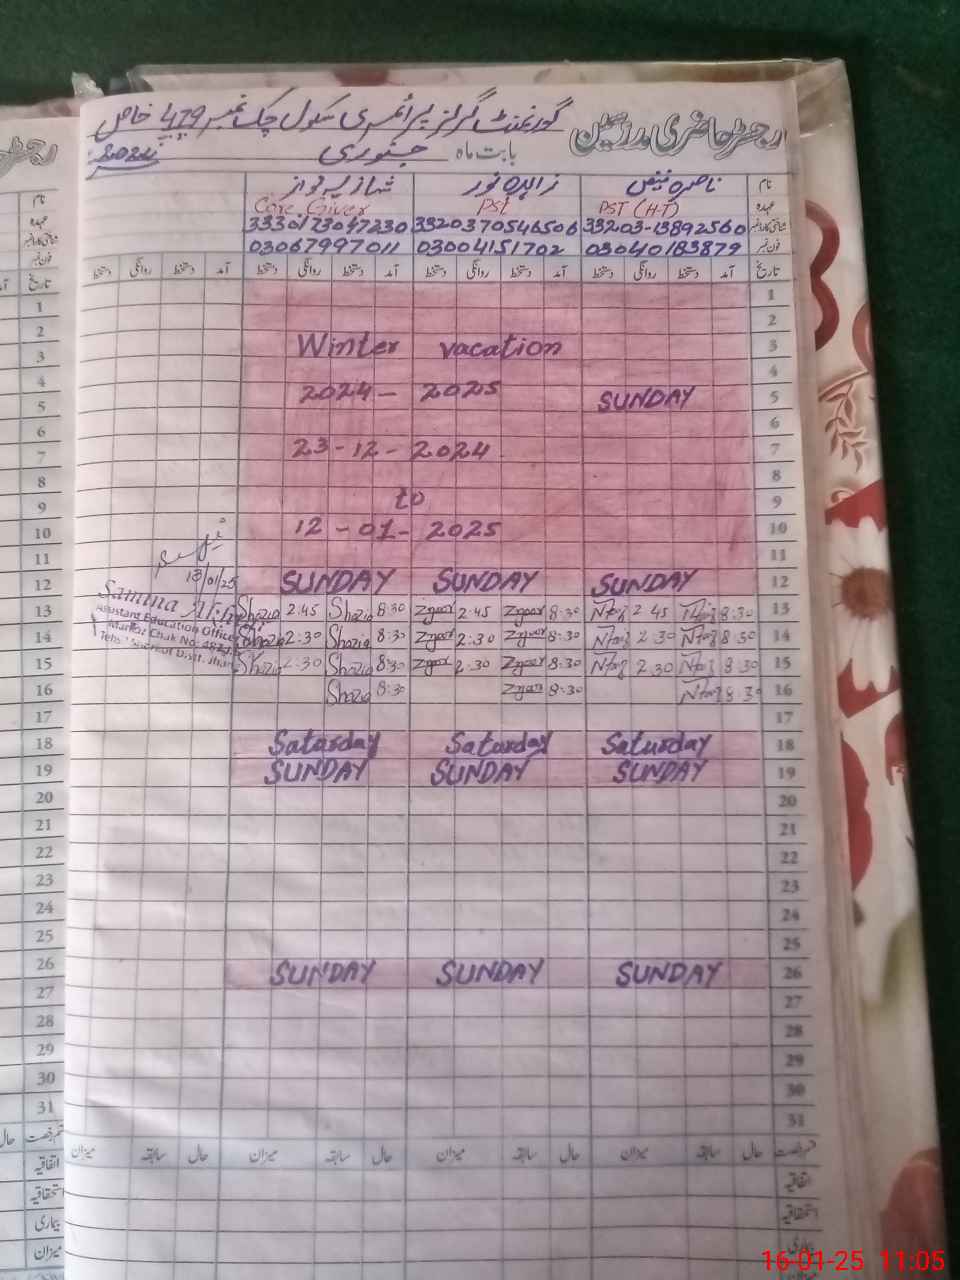 رجسٹر حاضری مدرسین گورنمنٹ گرلز پرائمری سکول چک نمبر 479 خاص
بابت ماہ جنوری
نام ناصرہ فیض زاہدہ نور شہناز نواز
عہدہ PST (H-T) PST Care Giver
شناختی کارڈ نمبر 33203-13892560 3320370546506 3330173047230
فون نمبر 03040183879 03004151702 03067997011
تاریخ آمد دستخط روانگی دستخط آمد دستخط روانگی دستخط آمد دستخط روانگی دستخط آمد دستخط روانگی دستخط
1
2
3 Winter vacation
4
5 2024 - 2025 SUNDAY
6
7 23-12-2024
8
9 to
10 12-01-2025
11
12 SUNDAY SUNDAY SUNDAY
13/01/25
Samina
Assistant Education Officer
Markaz Chak No.
13 Shazia 2:45 Shazia 8:30 Znoor 2:45 Znoor 8:30 2 45 8:30
14 Shazia 2:30 Shazia 8:30 Znoor 2:30 Znoor 8:30 2 30 8 30
15 Shazia 2:30 Shazia 8:30 Znoor 2:30 Znoor 8:30 2.30 8:30
16 Shazia 8:30 Znoor 8:30 8:30
17
18 Satarday Satarday Saturday
19 SUNDAY SUNDAY SUNDAY
20
21
22
23
24
25
26 SUNDAY SUNDAY SUNDAY
27
28
29
30
31
قسم رخصت حال سابقہ میزان حال سابقہ میزان حال سابقہ میزان حال سابقہ میزان
اتفاقیہ
استحقاقیہ
بیماری
میزان
16-01-25 11:05